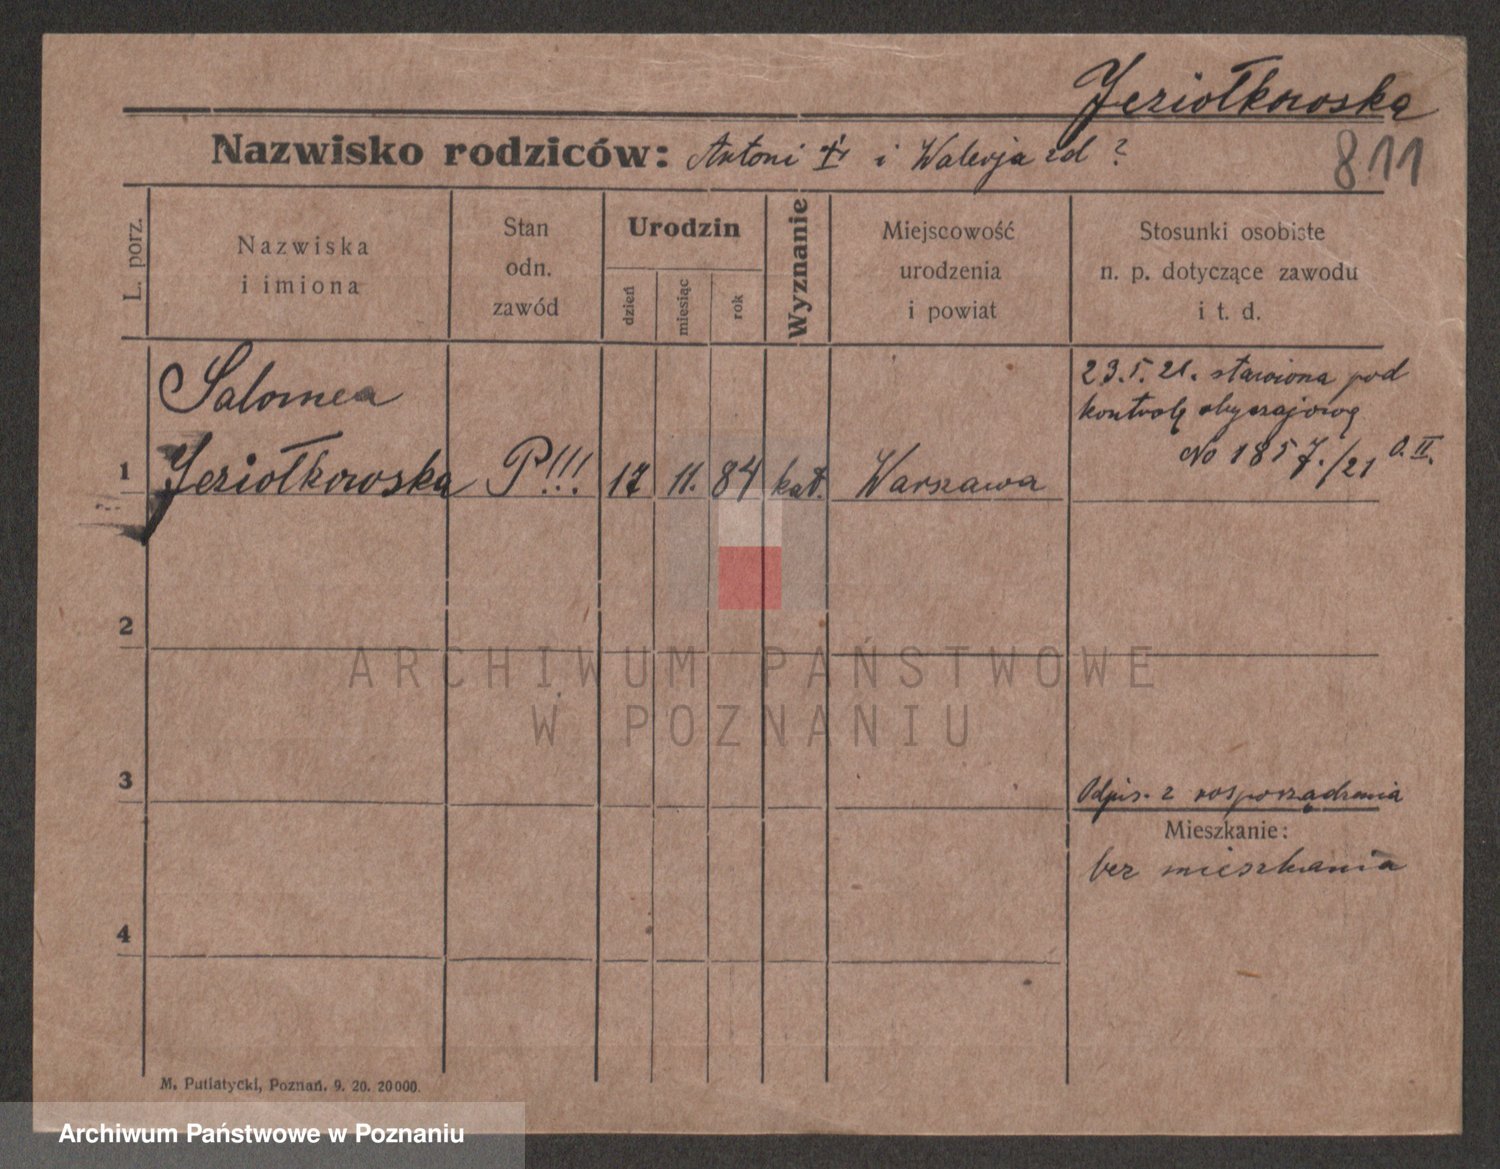 Jeziołkowska
Nazwisko rodziców: Antoni i Walerja zd ?
811
L. porz.
Nazwiska
i imiona
Stan
odn.
zawód
Urodzin
dzień
miesiąc
rok
Wyznanie
Miejscowość
urodzenia
i powiat
Stosunki osobiste
n. p. dotyczące zawodu
i t. d.
Salomea
1 Jeziołkowska P!!! 17 11. 84 kat. Warszawa
23.5.21. stawiona pod
kontrolę obyczajową
No 1857./21 O.II.
2
ARCHIWUM PAŃSTWOWE
W POZNANIU
3
Odpis. z rosporządzenia
Mieszkanie:
bez mieszkania
4
M. Putiatycki, Poznań. 9. 20. 20000.
Archiwum Państwowe w Poznaniu